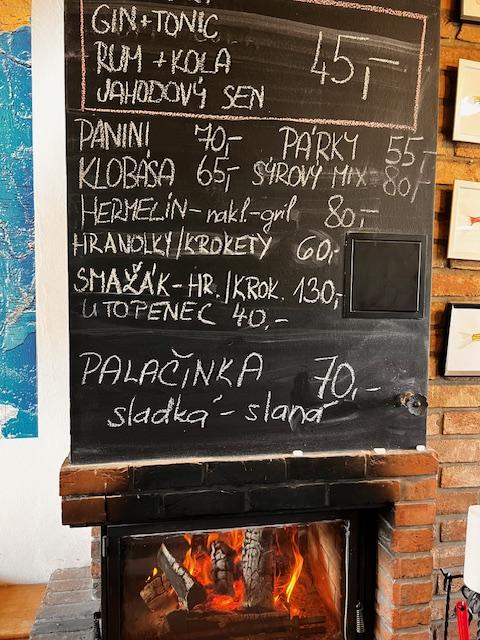 GIN+TONIC
RUM+KOLA 45,-
JAHODOVÝ SEN
PANINI 70,- PÁRKY 55,-
KLOBÁSA 65,- SÝROVÝ MIX 80,-
HERMELÍN-nakl.-gril 80,-
HRANOLKY/KROKETY 60,-
SMAŽÁK-HR./KROK. 130,-
UTOPENEC 40,-
PALAČINKA 70,-
sladká - slaná